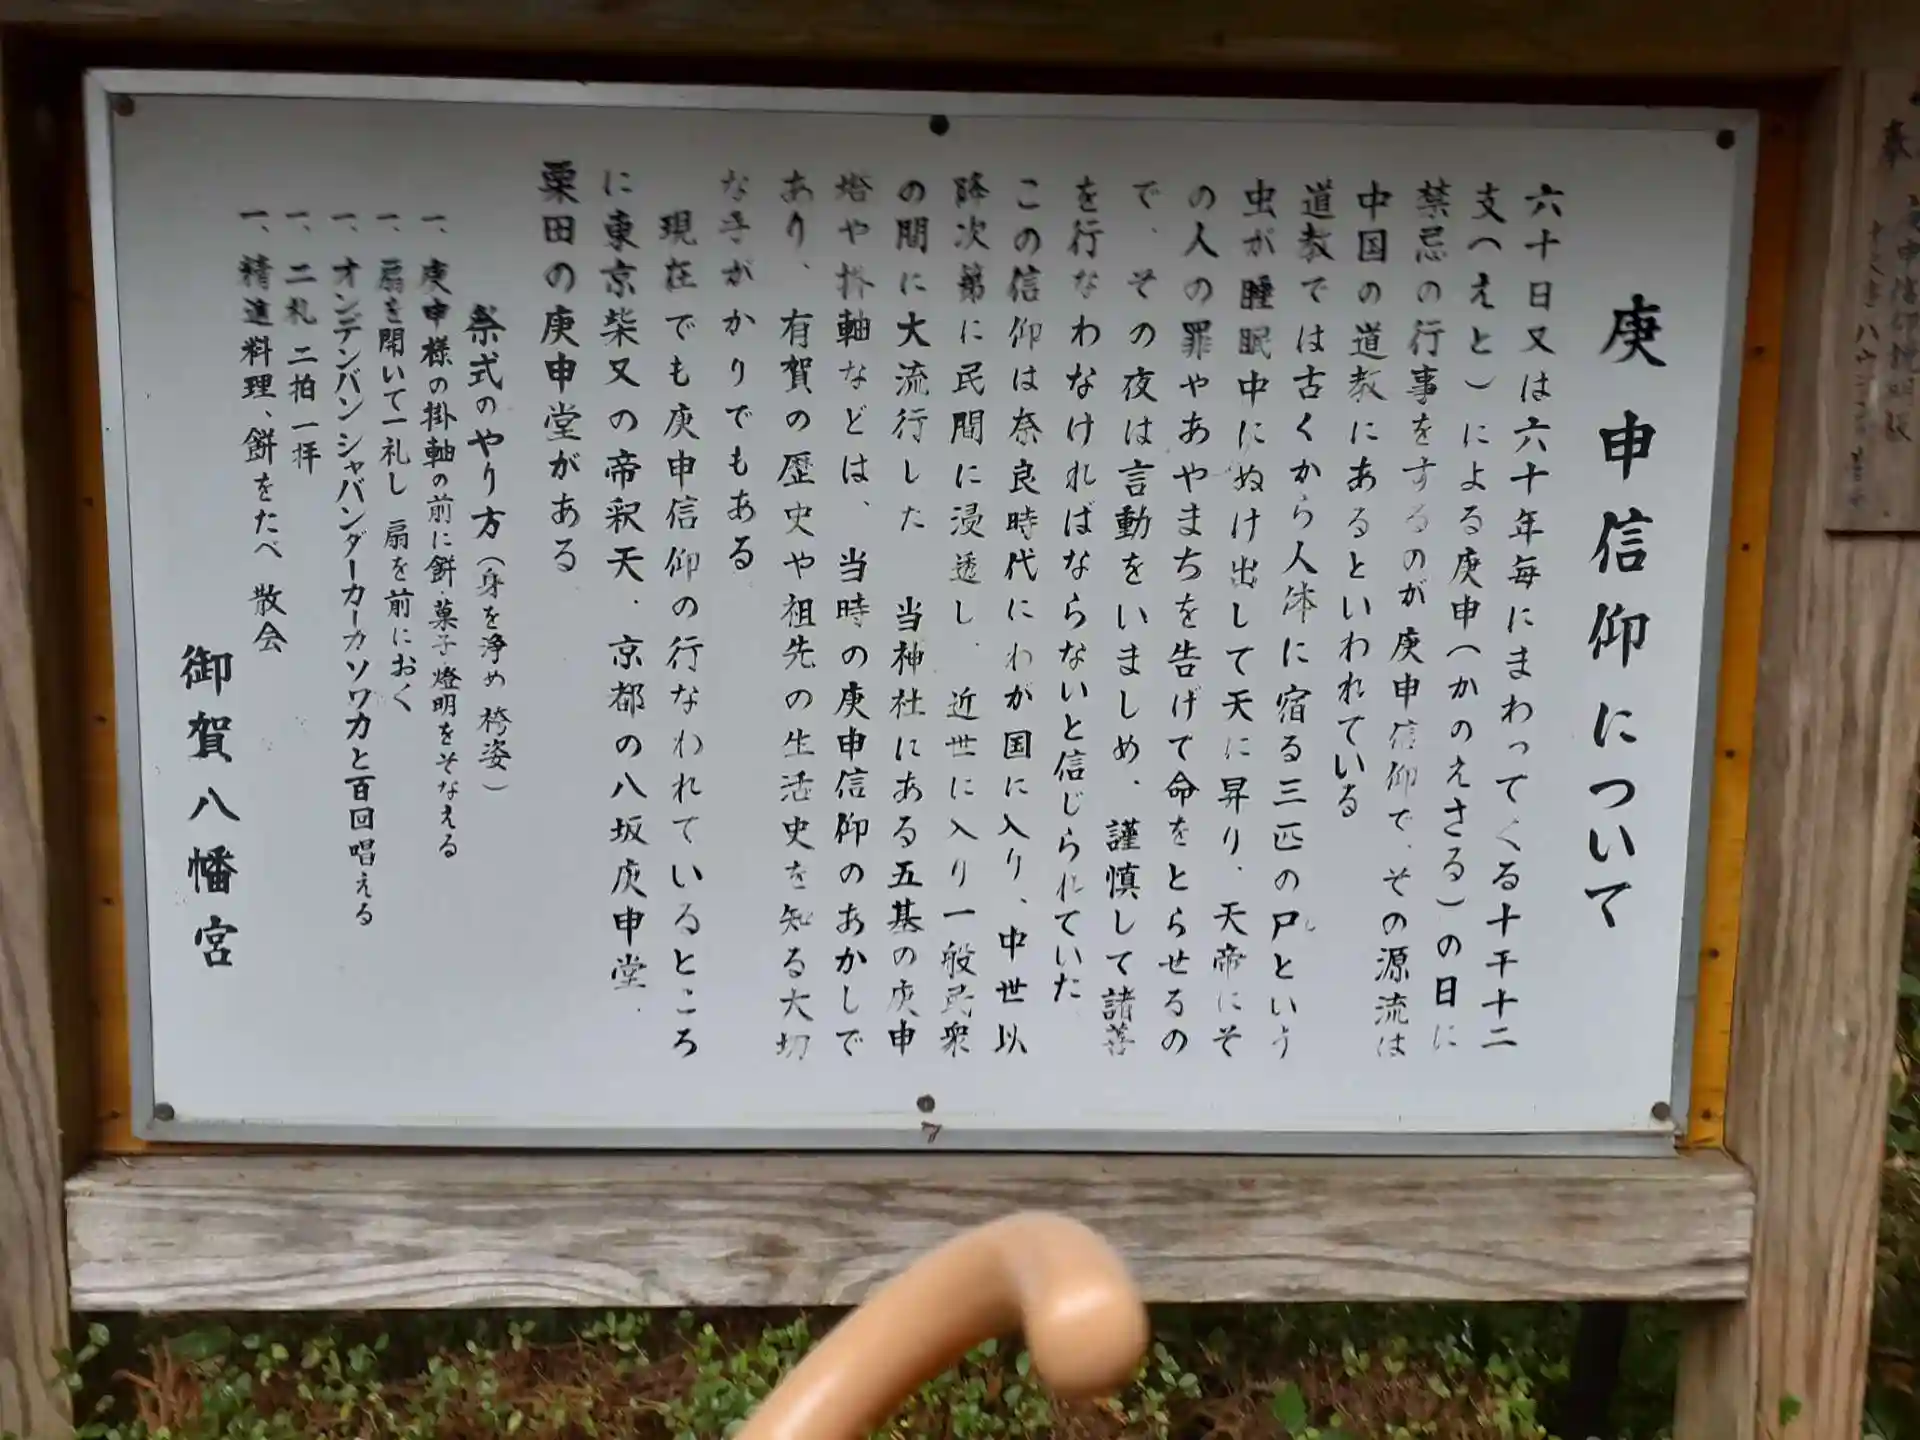 庚申信仰について
六十日又は六十年毎にまわってくる十干十二
支(えと)による庚申(かのえさる)の日に
禁忌の行事をするのが庚申信仰で、その源流は
中国の道教にあるといわれている
道教では古くから人体に宿る三匹の尸という
虫が睡眠中にぬけ出して天に昇り、天帝にそ
の人の罪やあやまちを告げて命をとらせるの
で、その夜は言動をいましめ、謹慎して諸善
を行なわなければならないと信じられていた
この信仰は奈良時代にわが国に入り、中世以
降次第に民間に浸透し、近世に入り一般民衆
の間に大流行した 当神社にある五基の庚申
塔や掛軸などは、当時の庚申信仰のあかしで
あり、有賀の歴史や祖先の生活史を知る大切
な手がかりでもある
現在でも庚申信仰の行なわれているところ
に東京柴又の帝釈天、京都の八坂庚申堂、
粟田の庚申堂がある
祭式のやり方(身を浄め 袴姿)
一、庚申様の掛軸の前に餅、菓子燈明をそなえる
一、扇を開いて一礼し 扇を前におく
一、オンデンバン シャバンダーカーカソワカと百回唱える
一、二礼 二拍一拝
一、精進料理、餅をたべ 散会
御賀八幡宮
7